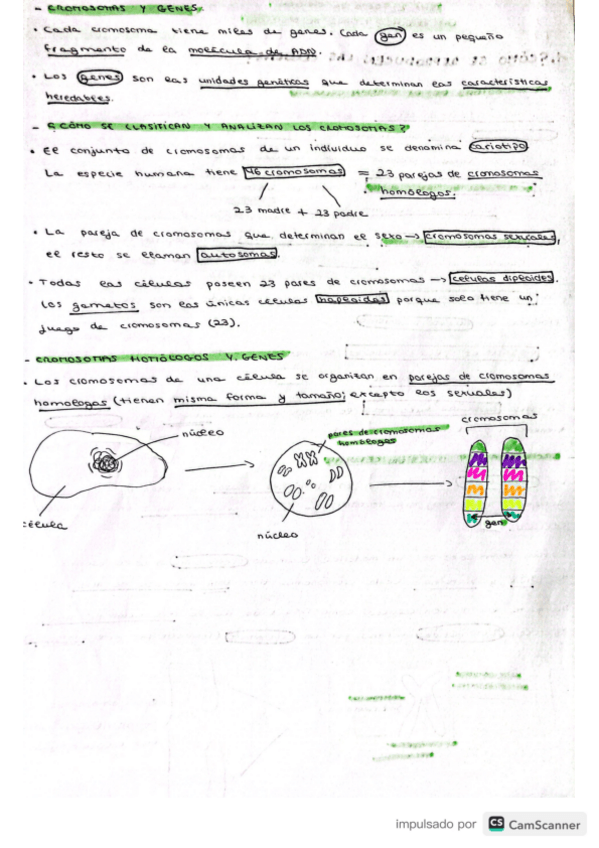 - CROMOSOMAS Y GENES
• Cada cromosoma tiene miles de genes. Cada gen es un pequeño
fragmento de la molécula de ADN.
• Los genes son las unidades genéticas que determinan las características
heredables.
- ¿CÓMO SE CLASIFICAN Y ANALIZAN LOS CROMOSOMAS?
• El conjunto de cromosomas de un individuo se denomina cariotipo
La especie humana tiene 46 cromosomas = 23 parejas de cromosomas
homólogos.
23 madre + 23 padre
• La pareja de cromosomas que determinan el sexo → cromosomas sexuales,
el resto se llaman autosomas.
• Todas las células poseen 23 pares de cromosomas → células diploides.
Los gametos son las únicas células haploides porque solo tiene un
juego de cromosomas (23).
- CROMOSOMAS HOMÓLOGOS Y GENES
• Los cromosomas de una célula se organizan en parejas de cromosomas
homologos (tienen misma forma y tamaño; excepto los sexuales)
cromosomas
núcleo
pares de cromosomas
homologos
célula
gen
núcleo
impulsado por CS CamScanner